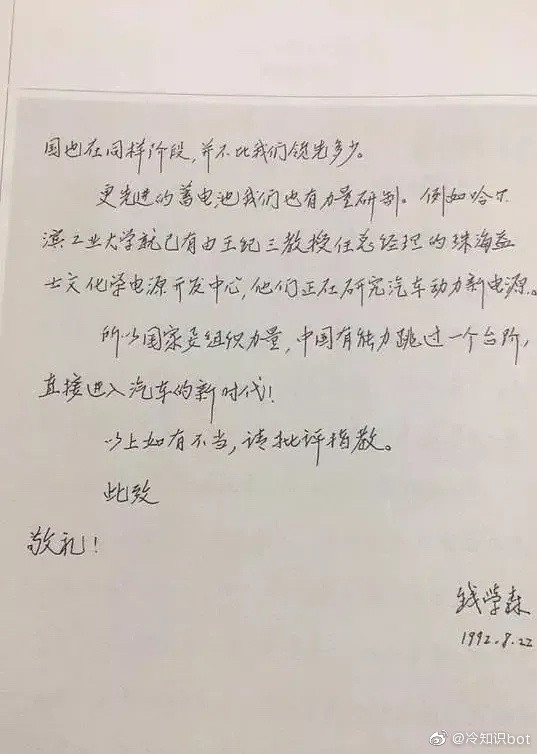 国也在同样阶段，并不比我们领先多少。
更先进的蓄电池我们也有力量研制。例如哈尔
滨工业大学就已有由王纪三教授任总经理的珠海益
士文化学电源开发中心，他们正在研究汽车动力新电源。
所以国家要组织力量，中国有能力跳过一个台阶，
直接进入汽车的新时代！
以上如有不当，请批评指教。
此致
敬礼！
钱学森
1992.8.22
@冷知识bot